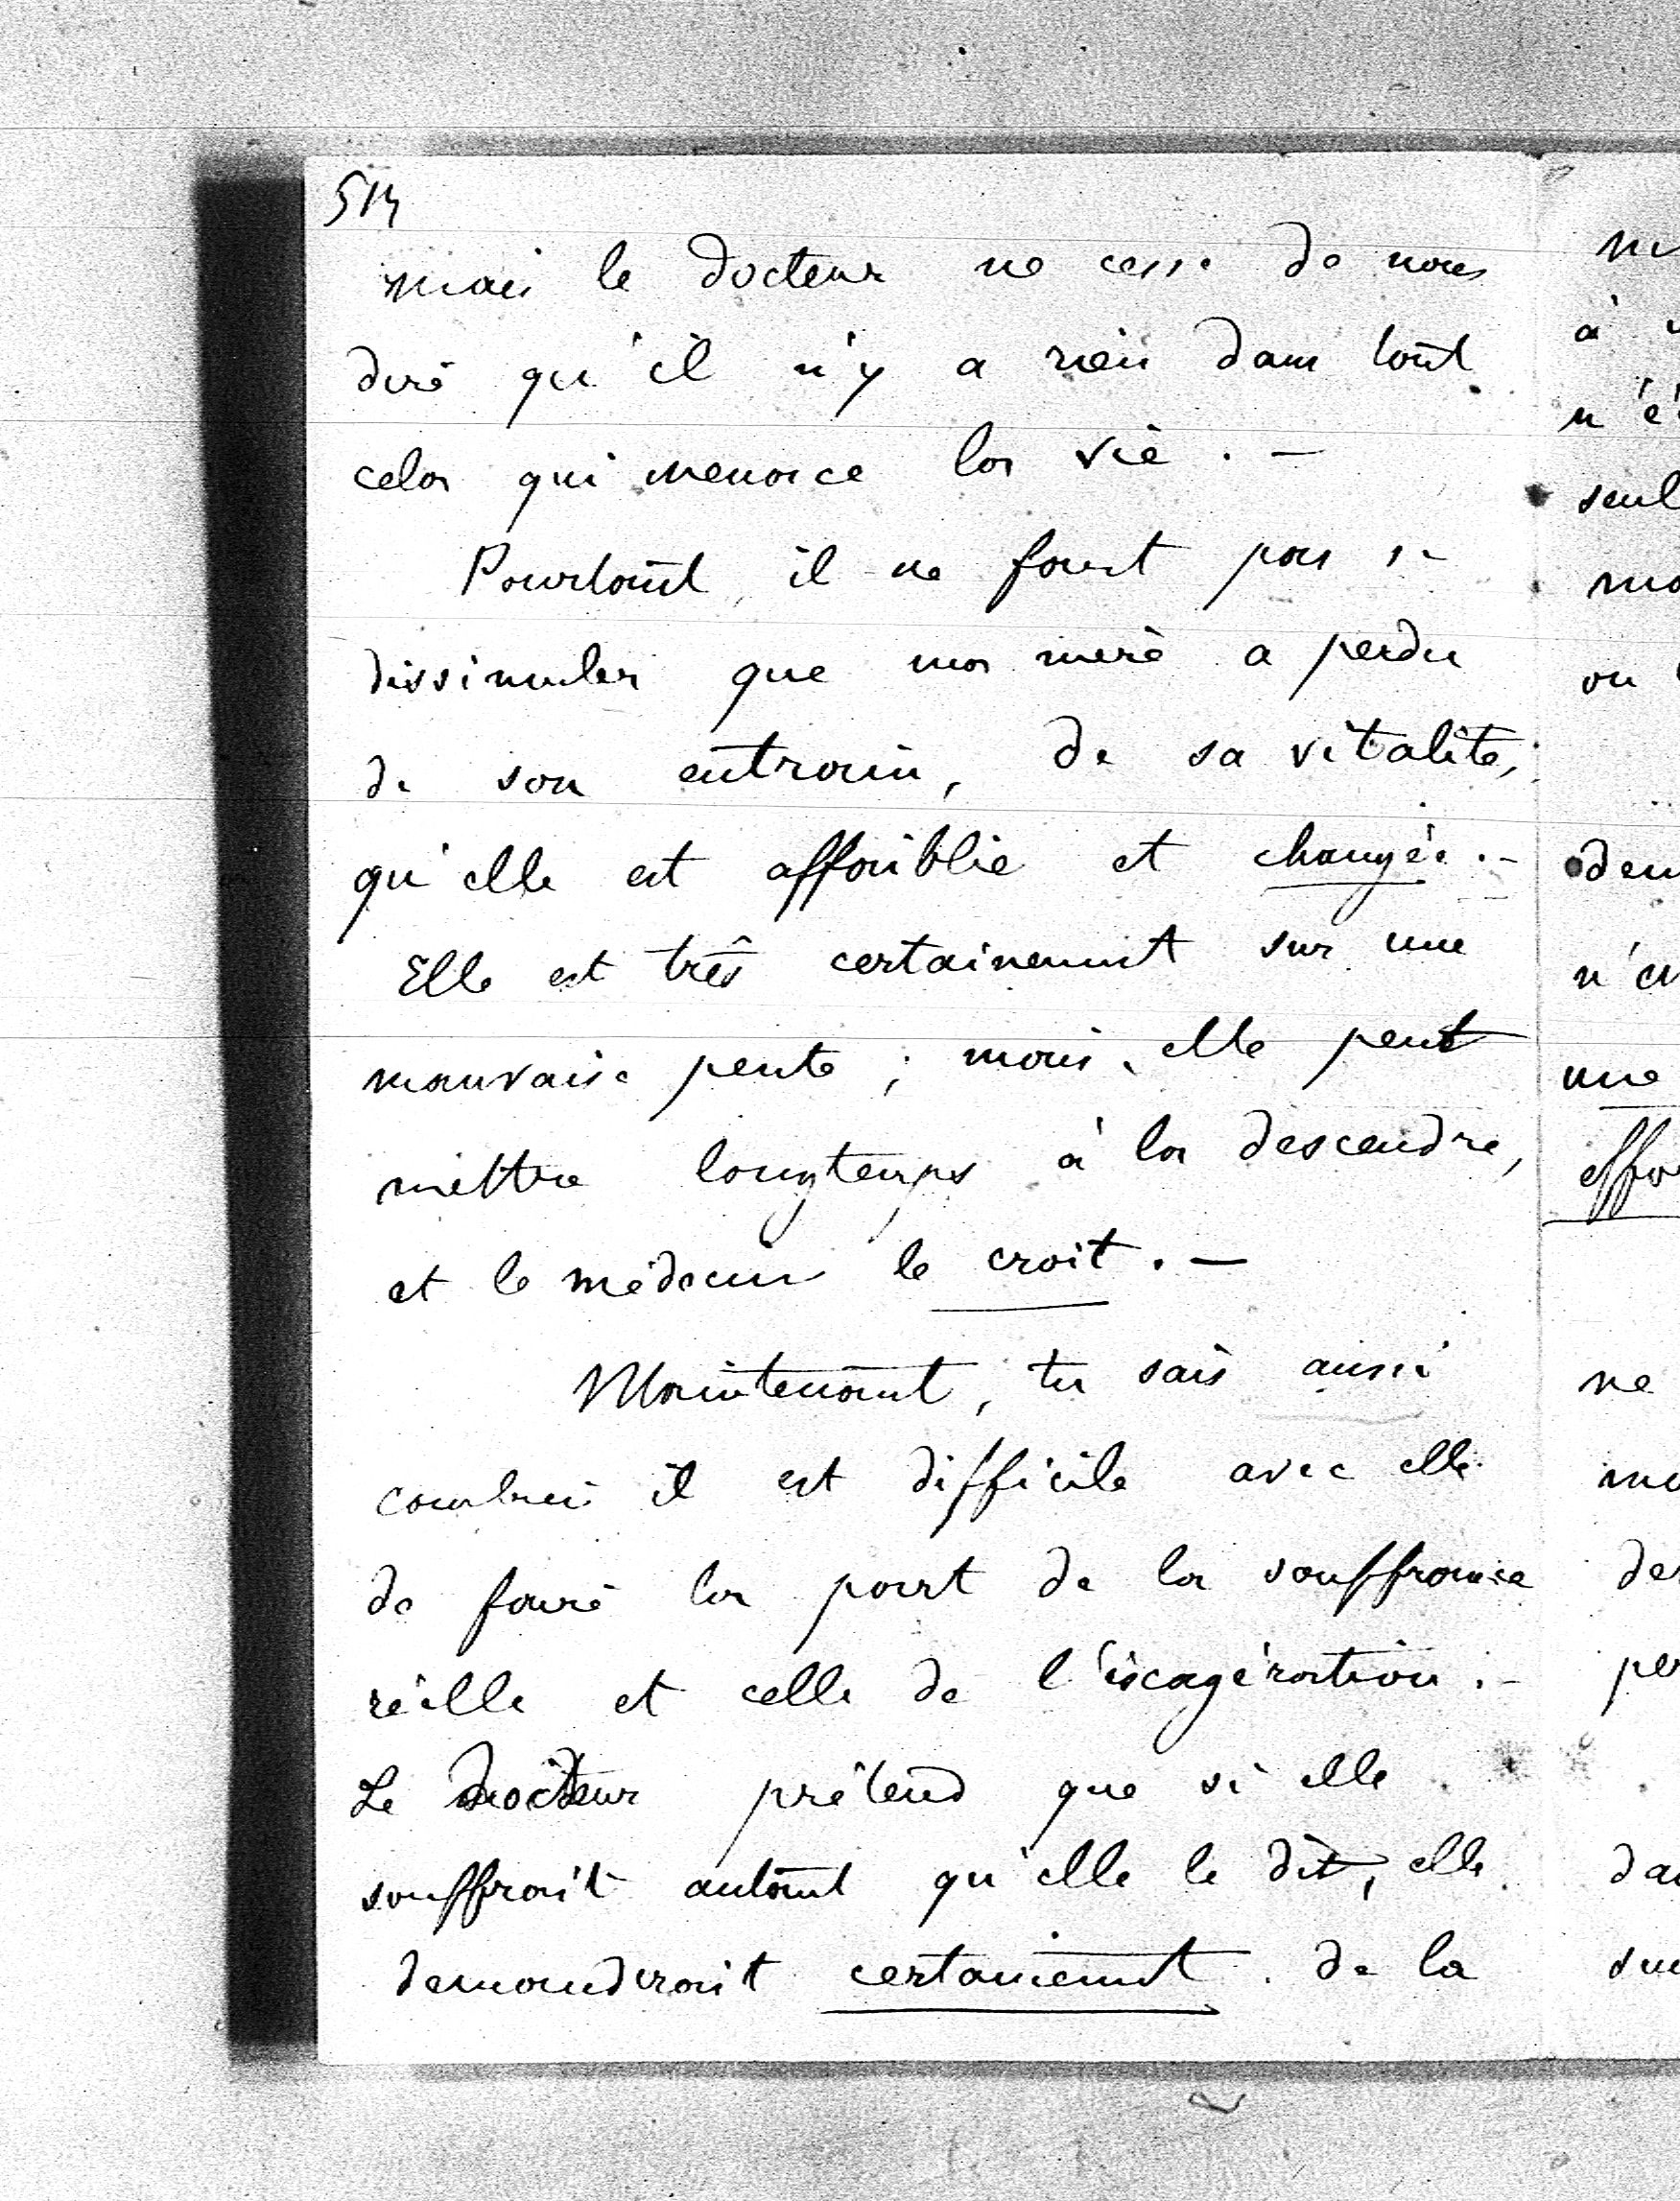 mais le docteur ne cesse de nous
dire qu'il n'y a rien dans tout
cela qui menace la vie. —
Pourtant, il ne faut pas se
dissimuler que ma mère a perdu
de son entrain, de sa vitalité,
qu'elle est affaiblie et changée. —
Elle est très certainement sur une
mauvaise pente ; mais, elle peut
mettre longtemps à la descendre,
et le médecin le croit. —
Maintenant, tu sais aussi
combien il est difficile avec elle
de faire la part de la souffrance
réelle et celle de l'exagération. —
Le Docteur prétend que si elle
souffrait autant qu'elle le dit, elle
demanderait certainement de la
à
n'é
seul
ou
n'en
une
effor
ne